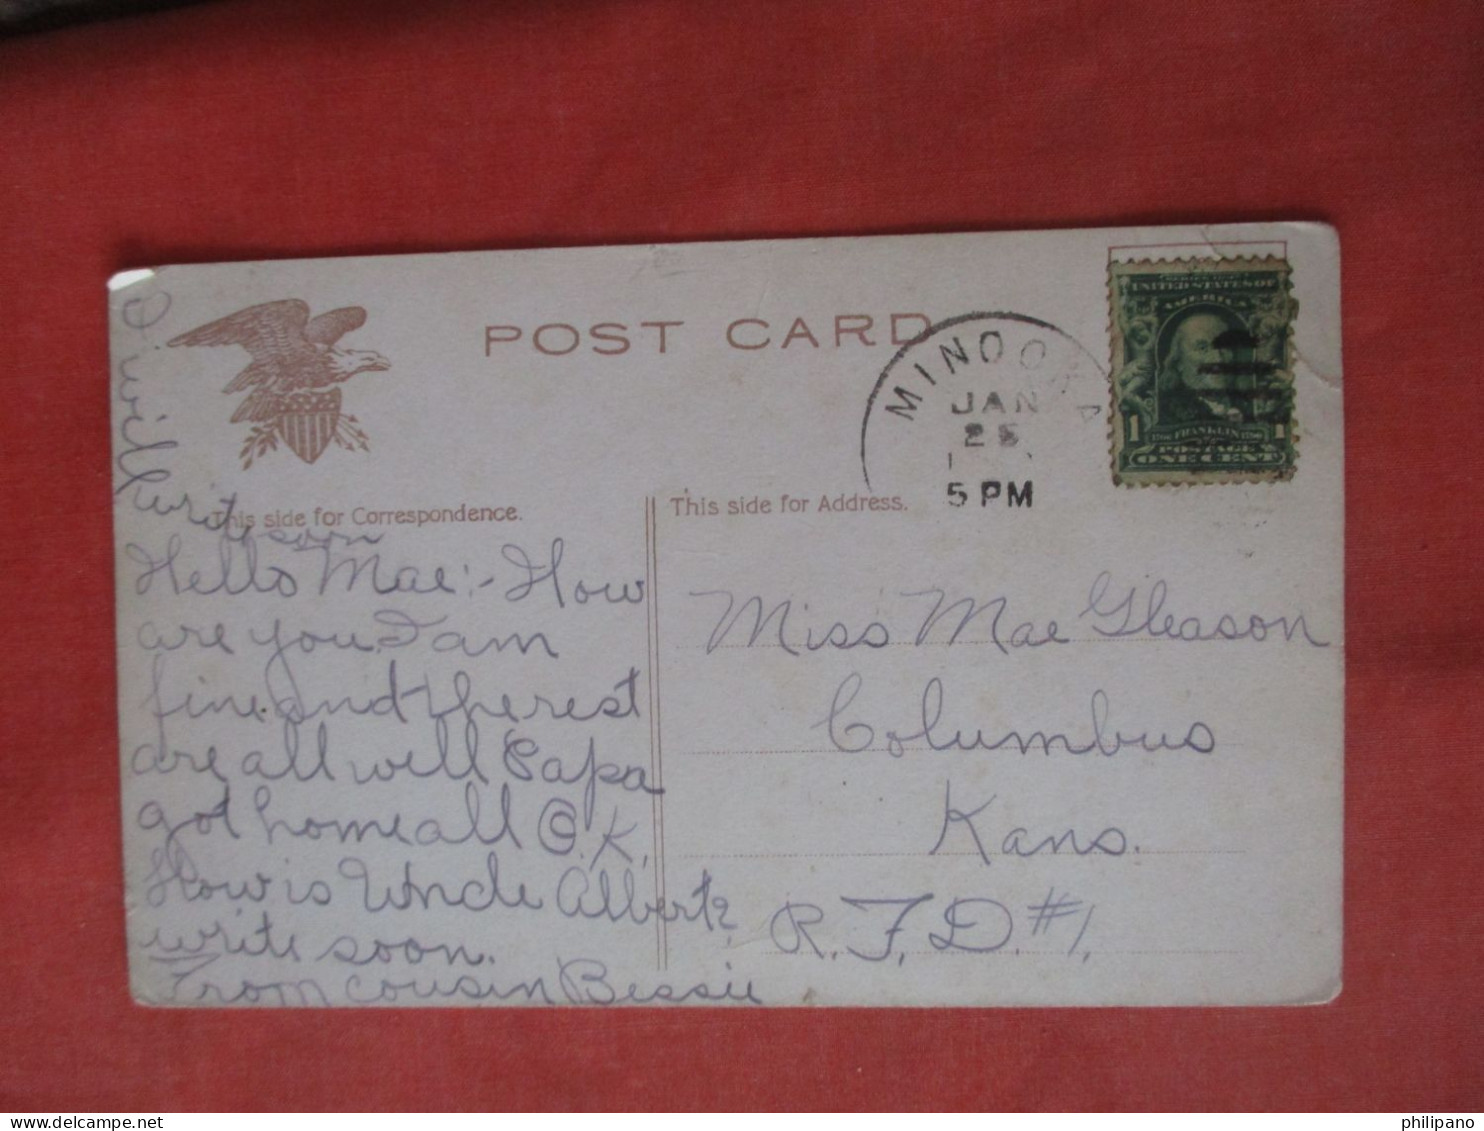 POST CARD
MINOOKA
JAN
25
5 PM
UNITED STATES OF
AMERICA
1 FRANKLIN 1
POSTAGE
ONE CENT
This side for Correspondence.
This side for Address.
I will
write
soon
Hello Mae:- How
are you I am
fine and the rest
are all well Papa
got home all O.K.
How is Uncle Albert?
write soon.
From cousin Bessie
Miss Mae Gleason
Columbus
Kans.
R.F.D. #1.
philipano